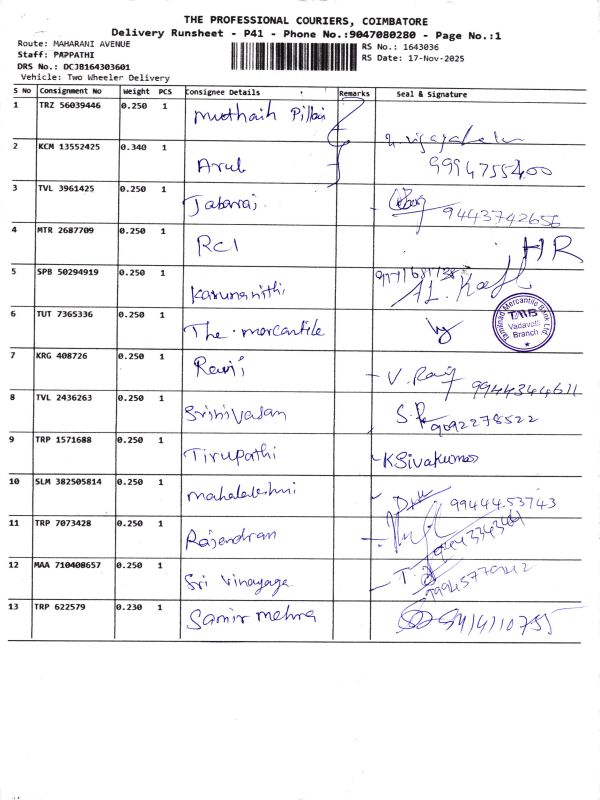 THE PROFESSIONAL COURIERS, COIMBATORE
Delivery Runsheet - P41 - Phone No.:9047080280 - Page No.:1
Route: MAHARANI AVENUE
Staff: PAPPATHI
DRS No.: DCJB164303601
Vehicle: Two Wheeler Delivery
RS No.: 1643036
RS Date: 17-Nov-2025
S No Consignment No Weight PCS Consignee Details Remarks Seal & Signature
1 TRZ 56039446 0.250 1 Muthaih Pillai
2 KCM 13552425 0.340 1 Arul 9994755400
3 TVL 3961425 0.250 1 Jabaraj 9443742656
4 MTR 2687709 0.250 1 RCI HR
5 SPB 50294919 0.250 1 Karunanithi
6 TUT 7365336 0.250 1 The mercantile Tamilnad Mercantile Bank Ltd TMB Vadavalli Branch
7 KRG 408726 0.250 1 Ravi V. Ravi 9944344611
8 TVL 2436263 0.250 1 Srinivasan 9092278522
9 TRP 1571688 0.250 1 Tirupathi K Sivakumar
10 SLM 382505814 0.250 1 mahalakshmi 99444.53743
11 TRP 7073428 0.250 1 Rajendran
12 MAA 710408657 0.250 1 Sri Vinayaga
13 TRP 622579 0.230 1 Samir mehra